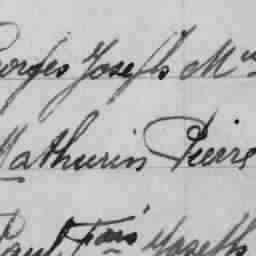 Georges Joseph M
Mathurin Pierre
Paul Fois Joseph